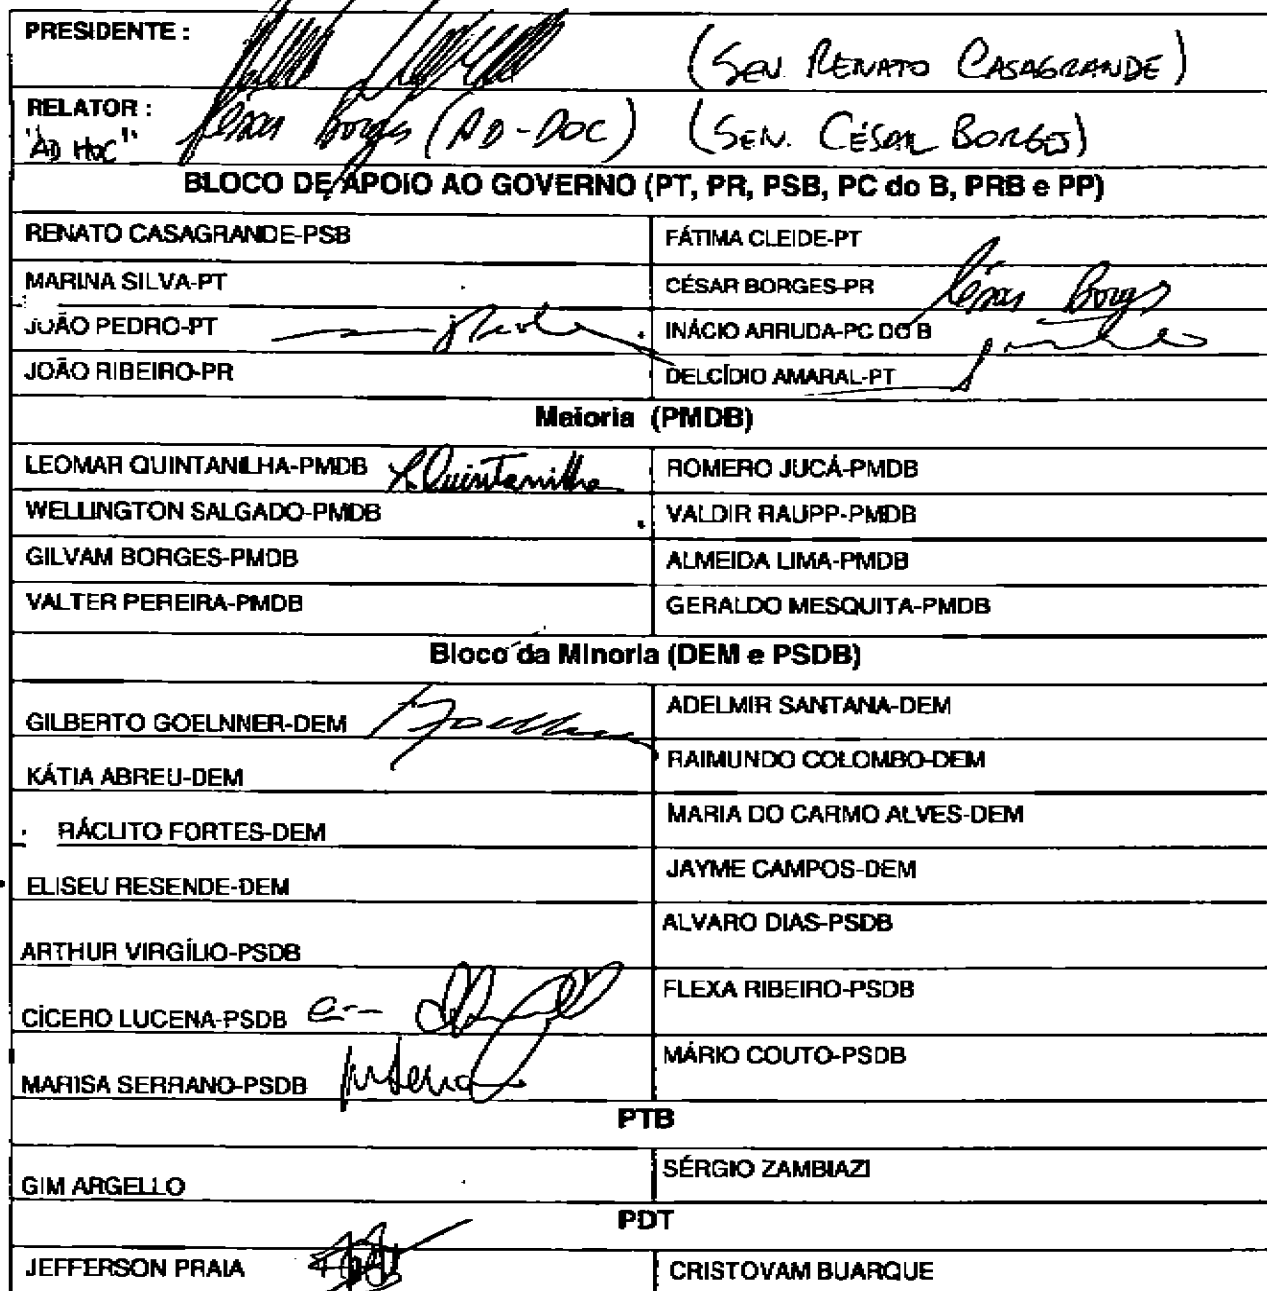 PRESIDENTE :
(SEN. RENATO CASAGRANDE)
RELATOR :
"AD HOC" César Borges (AD-DOC) (SEN. CÉSAR BORGES)
BLOCO DE APOIO AO GOVERNO (PT, PR, PSB, PC do B, PRB e PP)
RENATO CASAGRANDE-PSB FÁTIMA CLEIDE-PT
MARINA SILVA-PT CÉSAR BORGES-PR César Borges
JOÃO PEDRO-PT INÁCIO ARRUDA-PC DO B
JOÃO RIBEIRO-PR DELCÍDIO AMARAL-PT
Maioria (PMDB)
LEOMAR QUINTANILHA-PMDB L.Quintanilha ROMERO JUCÁ-PMDB
WELLINGTON SALGADO-PMDB VALDIR RAUPP-PMDB
GILVAM BORGES-PMDB ALMEIDA LIMA-PMDB
VALTER PEREIRA-PMDB GERALDO MESQUITA-PMDB
Bloco da Minoria (DEM e PSDB)
GILBERTO GOELNNER-DEM ADELMIR SANTANA-DEM
KÁTIA ABREU-DEM RAIMUNDO COLOMBO-DEM
RÁCLITO FORTES-DEM MARIA DO CARMO ALVES-DEM
ELISEU RESENDE-DEM JAYME CAMPOS-DEM
ARTHUR VIRGÍLIO-PSDB ALVARO DIAS-PSDB
CÍCERO LUCENA-PSDB FLEXA RIBEIRO-PSDB
MARISA SERRANO-PSDB MÁRIO COUTO-PSDB
PTB
GIM ARGELLO SÉRGIO ZAMBIAZI
PDT
JEFFERSON PRAIA CRISTOVAM BUARQUE